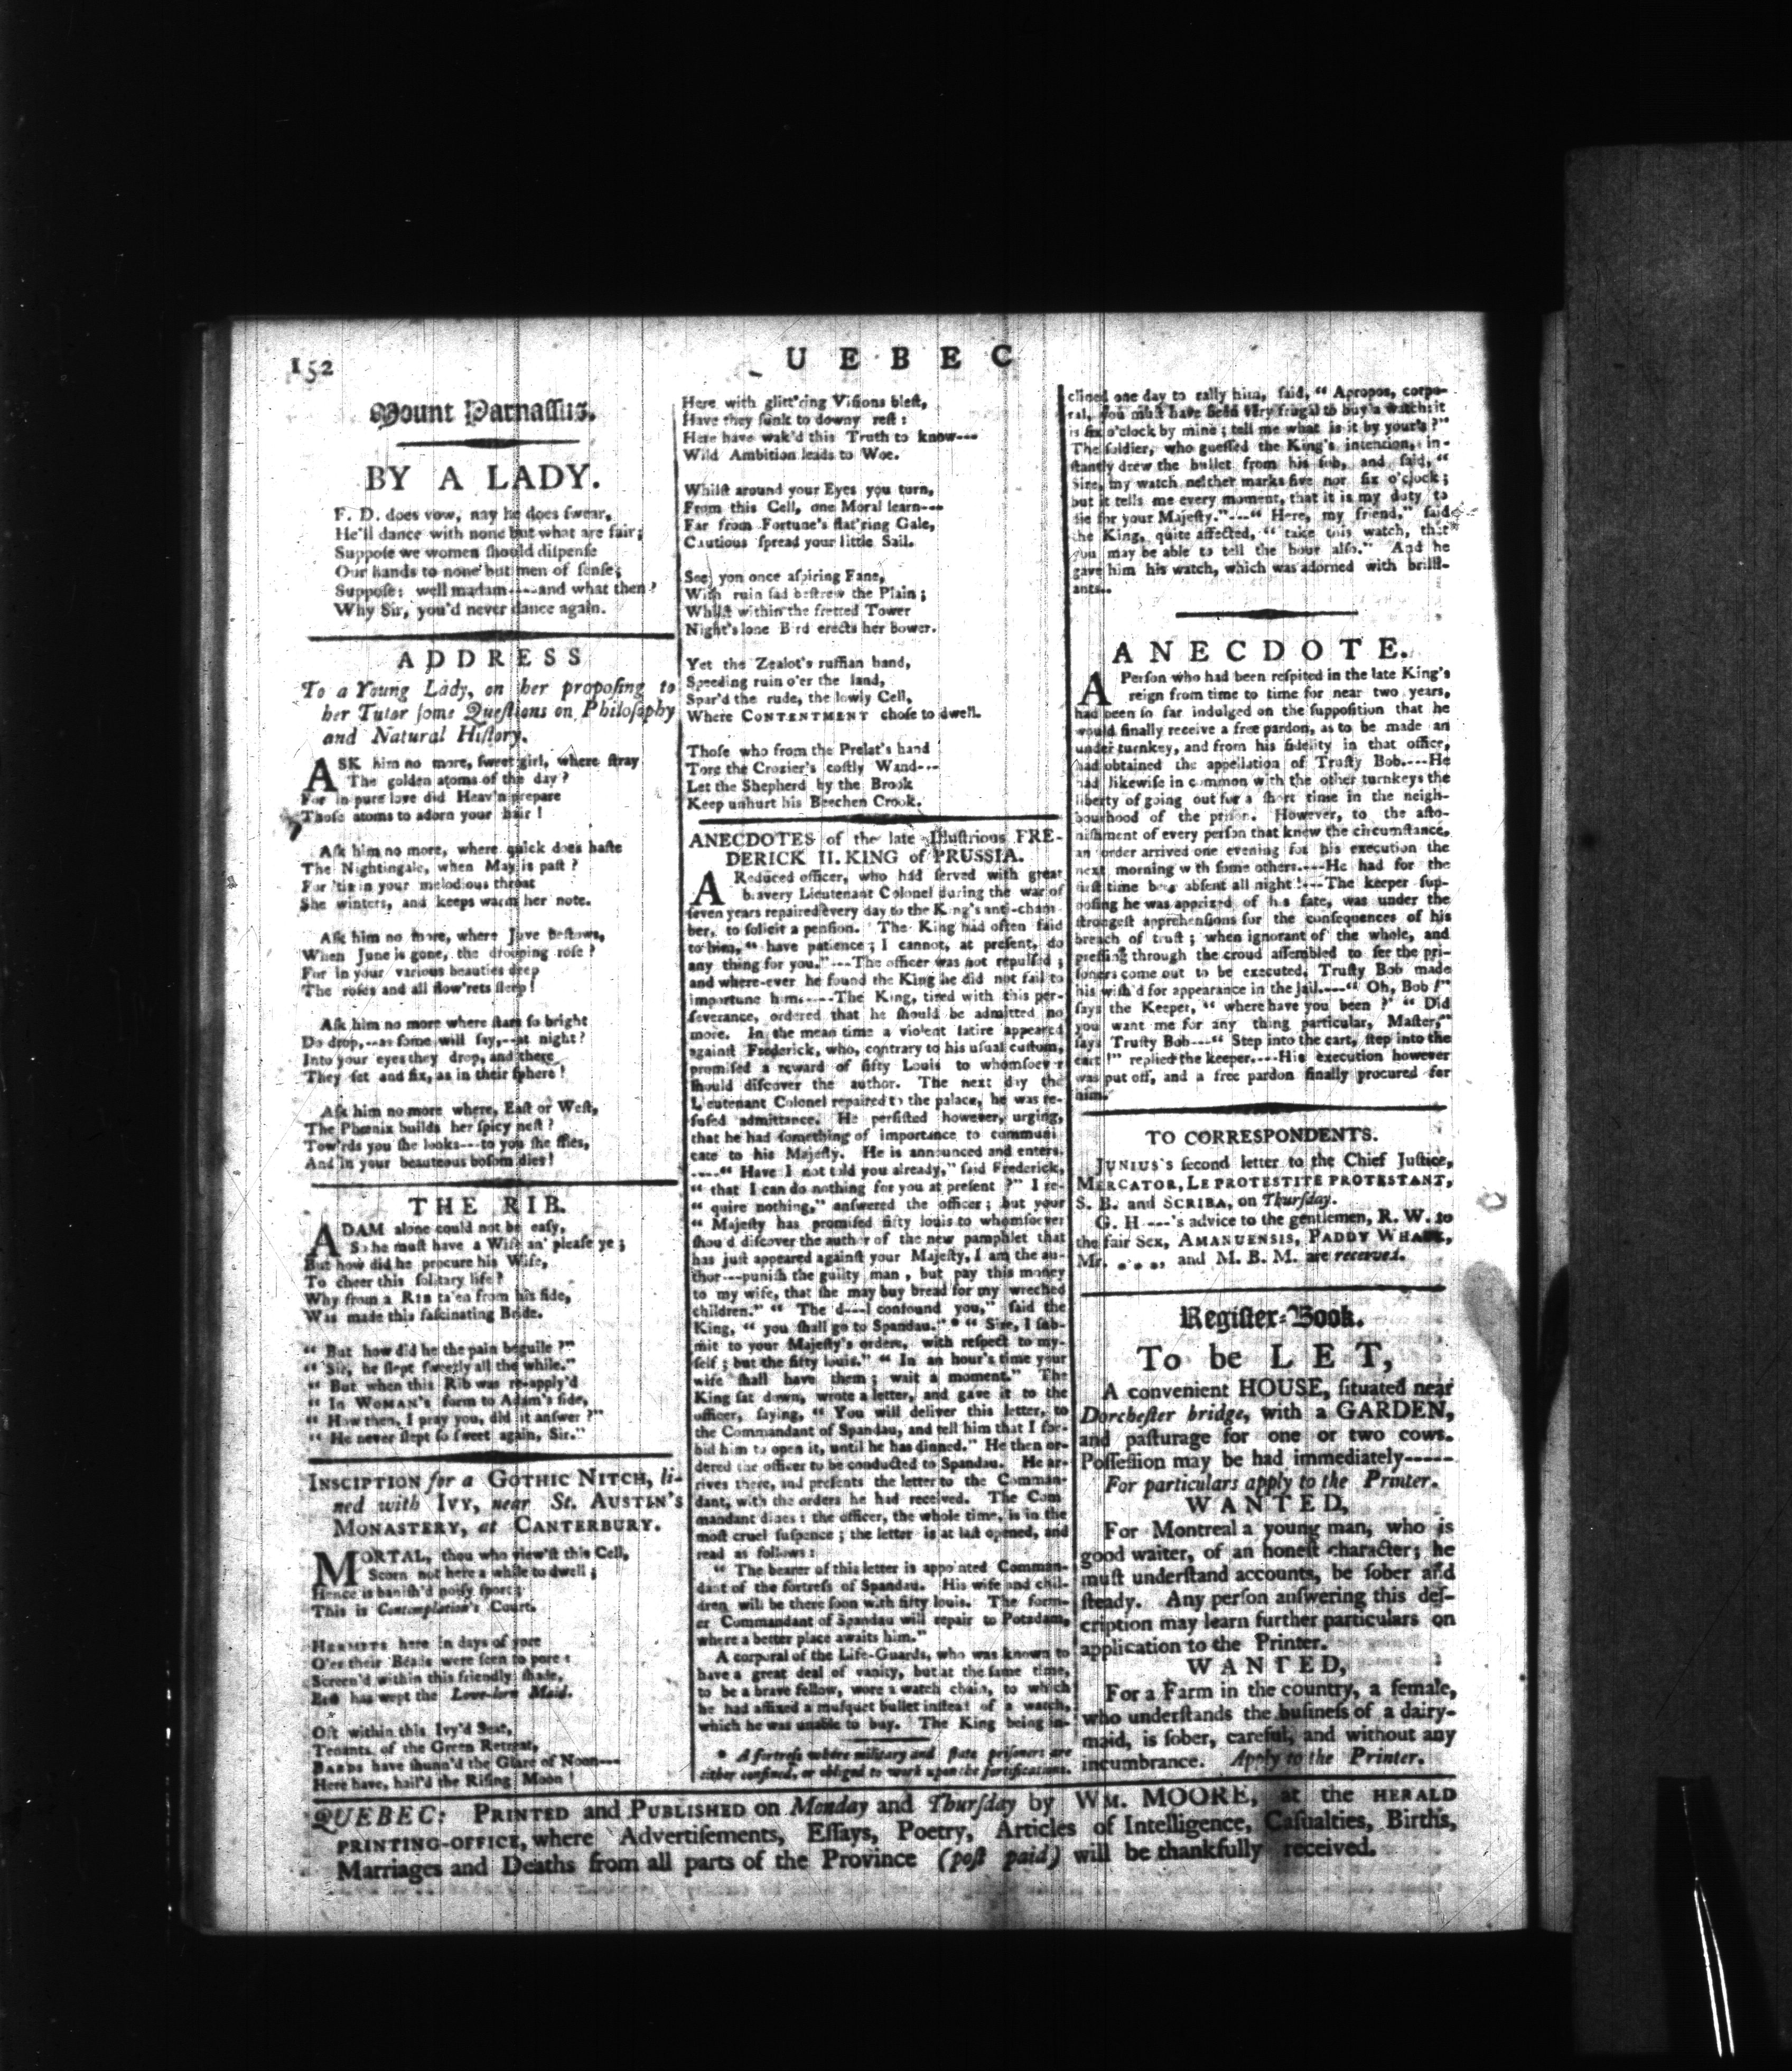 152
UEBEC
Mount Parnaſſus.
BY A LADY.
F. D. does vow, nay he does ſwear,
He'll dance with none but what are fair;
Suppoſe we women ſhould diſpenſe
Our hands to none but men of ſenſe;
Suppoſe: well madam----and what then?
Why Sir, you'd never dance again.
ADDRESS
To a Young Lady, on her propoſing to
her Tutor ſome Queſtions on Philoſophy
and Natural Hiſtory.
ASK him no more, ſweet girl, where ſtray
The golden atoms of the day?
For in pure love did Heav'n prepare
Thoſe atoms to adorn your hair!
Aſk him no more, where quick does haſte
The Nightingale, when May is paſt?
For 'tis in your melodious throat
She winters, and keeps warm her note.
Aſk him no more, where Jove beſtows,
When June is gone, the drooping roſe?
For in your various beauties deep
The roſes and all flow'rets ſleep!
Aſk him no more where ſtars ſo bright
Do drop,--as ſome will ſay,--at night?
Into your eyes they drop, and there
They ſet and fix, as in their ſphere!
Aſk him no more where, Eaſt or Weſt,
The Phœnix builds her ſpicy neſt?
Tow'rds you ſhe looks---to you ſhe flies,
And in your beauteous boſom dies!
THE RIB.
ADAM alone could not be eaſy,
So he muſt have a Wife an' pleaſe ye;
But how did he procure his Wife,
To cheer this ſolitary life?
Why from a RIB ta'en from his ſide,
Was made this faſcinating Bride.
"But how did he the pain beguile?"
"Sir, he ſlept ſweetly all the while."
"But when this Rib was re-apply'd
"In WOMAN's form to Adam's ſide,
"How then, I pray you, did it anſwer?"
"He never ſlept ſo ſweet again, Sir."
INSCIPTION for a GOTHIC NITCH, li-
ned with IVY, near St. AUSTIN's
MONASTERY, at CANTERBURY.
MORTAL, thou who view'ſt this Cell,
Scorn not here a while to dwell;
Hence is baniſh'd noiſy ſport;
This is Contemplation's Court.
HERMITS here in days of yore
O'er their Beads were ſeen to pore:
Screen'd within this friendly ſhade,
Erſt has wept the Love-lorn Maid.
Oft within this Ivy'd Seat,
Tenants of the Green Retreat,
BARDS have ſhunn'd the Glare of Noon---
Here have, hail'd the Riſing Moon!
Here with glitt'ring Viſions bleſt,
Have they ſunk to downy reſt:
Here have wak'd this Truth to know---
Wild Ambition leads to Woe.
Whilſt around your Eyes you turn,
From this Cell, one Moral learn---
Far from Fortune's flat'ring Gale,
Cautious ſpread your little Sail.
See, yon once aſpiring Fane,
With ruin ſad beſtrew the Plain;
Whilſt within the fretted Tower
Night's lone Bird erects her Bower.
Yet the Zealot's ruffian hand,
Speeding ruin o'er the land,
Spar'd the rude, the lowly Cell,
Where CONTENTMENT choſe to dwell.
Thoſe who from the Prelat's hand
Tore the Crozier's coſtly Wand---
Let the Shepherd by the Brook
Keep unhurt his Beechen Crook.
ANECDOTES of the late Illuſtrious FRE-
DERICK II. KING of PRUSSIA.
A Reduced officer, who had ſerved with great
bravery Lieutenant Colonel during the war of
ſeven years repaired every day to the King's anti-cham
ber, to ſolicit a penſion. The King had often ſaid
to him, "have patience; I cannot, at preſent, do
any thing for you."---The officer was not repulſed;
and where-ever he found the King he did not fail to
importune him.----The King, tired with this per-
ſeverance, ordered that he ſhould be admitted no
more. In the mean time a violent ſatire appeared
againſt Frederick, who, contrary to his uſual cuſtom,
promiſed a reward of fifty Louis to whomſoever
ſhould diſcover the author. The next day the
Lieutenant Colonel repaired to the palace, he was re-
fuſed admittance. He perſiſted however, urging,
that he had ſomething of importance to communi
cate to his Majeſty. He is announced and enters
----"Have I not told you already," ſaid Frederick,
"that I can do nothing for you at preſent?" I re-
"quire nothing," anſwered the officer; but your
"Majeſty has promiſed fifty louis to whomſoever
ſhou'd diſcover the author of the new pamphlet that
has juſt appeared againſt your Majeſty, I am the au-
thor---puniſh the guilty man, but pay this money
to my wife, that ſhe may buy bread for my wreched
children." "The d---l confound you," ſaid the
King, "you ſhall go to Spandau."* "Sire, I ſub-
mit to your Majeſty's orders, with reſpect to my-
ſelf; but the fifty louis." "In an hour's time your
wife ſhall have them; wait a moment." The
King ſat down, wrote a letter, and gave it to the
officer, ſaying, "You will deliver this letter, to
the Commandant of Spandau, and tell him that I for-
bid him to open it, until he has dinned." He then or-
dered the officer to be conducted to Spandau. He ar-
rives there, and preſents the letter to the Comman-
dant, with the orders he had received. The Com
mandant dines: the officer, the whole time, is in the
moſt cruel ſuſpence; the letter is at laſt opened, and
read as follows:
"The bearer of this letter is appointed Comman-
dant of the fortreſs of Spandau. His wife and chil-
dren will be there ſoon with fifty louis. The form-
er Commandant of Spandau will repair to Potzdam,
where a better place awaits him."
A corporal of the Life-Guards, who was known to
have a great deal of vanity, but at the ſame time,
to be a brave fellow, wore a watch chain, to which
he had affixed a muſquet bullet inſteat of a watch,
which he was unable to buy. The King being in-
* A fortreſs where military and ſtate priſoners are
either confined, or obliged to work upon the fortifications.
clined one day to rally him, ſaid, "Apropos, corpo-
ral, you muſt have been very frugal to buy a watch: it
is ſix o'clock by mine; tell me what is it by your's?"
The ſoldier, who gueſſed the King's intention, in-
ſtantly drew the bullet from his fob, and ſaid, "
Sire, my watch neither marks five nor ſix o'clock;
but it tells me every moment, that it is my duty to
die for your Majeſty."---"Here, my friend," ſaid
the King, quite affected, "take this watch, that
you may be able to tell the hour alſo." And he
gave him his watch, which was adorned with brilli-
ants.
ANECDOTE.
A Perſon who had been reſpited in the late King's
reign from time to time for near two years,
had been ſo far indulged on the ſuppoſition that he
would finally receive a free pardon, as to be made an
under turnkey, and from his fidelity in that office,
had obtained the appellation of Truſty Bob.---He
had likewiſe in common with the other turnkeys the
liberty of going out for a ſhort time in the neigh-
bourhood of the priſon. However, to the aſto-
niſhment of every perſon that knew the circumſtance,
an order arrived one evening for his execution the
next morning with ſome others.----He had for the
firſt time been abſent all night!---The keeper ſup-
poſing he was apprized of his fate, was under the
ſtrongeſt apprehenſions for the conſequences of his
breach of truſt; when ignorant of the whole, and
preſſing through the croud aſſembled to ſee the pri-
ſoners come out to be executed, Truſty Bob made
his wiſh'd for appearance in the jail.----"Oh, Bob!"
ſays the Keeper, "where have you been?" "Did
you want me for any thing particular, Maſter,"
ſays Truſty Bob---"Step into the cart, ſtep into the
cart!" replied the keeper.---His execution however
was put off, and a free pardon finally procured for
him.
TO CORRESPONDENTS.
JUNIUS's ſecond letter to the Chief Juſtice,
MERCATOR, LE PROTESTITE PROTESTANT,
S. B. and SCRIBA, on Thurſday.
G. H---'s advice to the gentlemen, R. W. to
the fair Sex, AMANUENSIS, PADDY WHACK,
Mr. . . ., and M. B. M. are received.
Regiſter-Book.
To be LET,
A convenient HOUSE, ſituated near
Dorcheſter bridge, with a GARDEN,
and paſturage for one or two cows.
Poſſeſſion may be had immediately-----
For particulars apply to the Printer.
WANTED,
For Montreal a young man, who is
good waiter, of an honeſt character; he
muſt underſtand accounts, be ſober and
ſteady. Any perſon anſwering this deſ-
cription may learn further particulars on
application to the Printer.
WANTED,
For a Farm in the country, a female,
who underſtands the buſineſs of a dairy-
maid, is ſober, careful, and without any
incumbrance. Apply to the Printer.
QUEBEC: PRINTED and PUBLISHED on Monday and Thurſday by WM. MOORE, at the HERALD
PRINTING-OFFICE, where Advertiſements, Eſſays, Poetry, Articles of Intelligence, Caſualties, Births,
Marriages and Deaths from all parts of the Province (poſt paid) will be thankfully received.